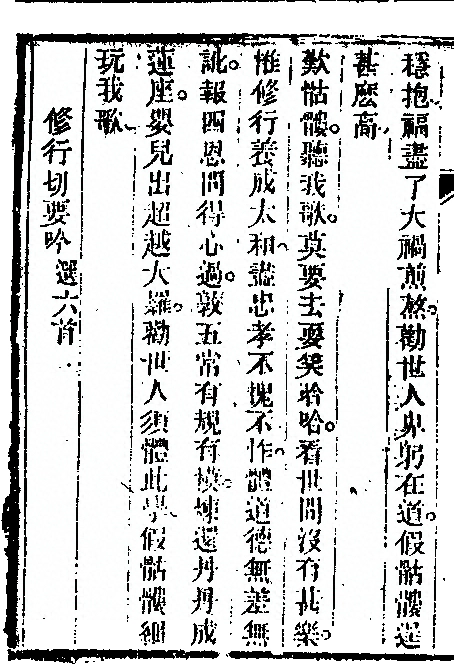 穩抱福盡了大禍煎熬勸世人卑躬在道假骷髏逞
甚麽高
歎骷髏聽我歌莫要去耍笑哈哈看世間沒有甚樂
惟修行養成太和盡忠孝不愧不怍體道德無差無
訛報四恩問得心過敦五常有規有模煉還丹丹成
蓮座嬰兒出超越大羅勸世人須體此學假骷髏細
玩我歌
修行切要吟 選六首